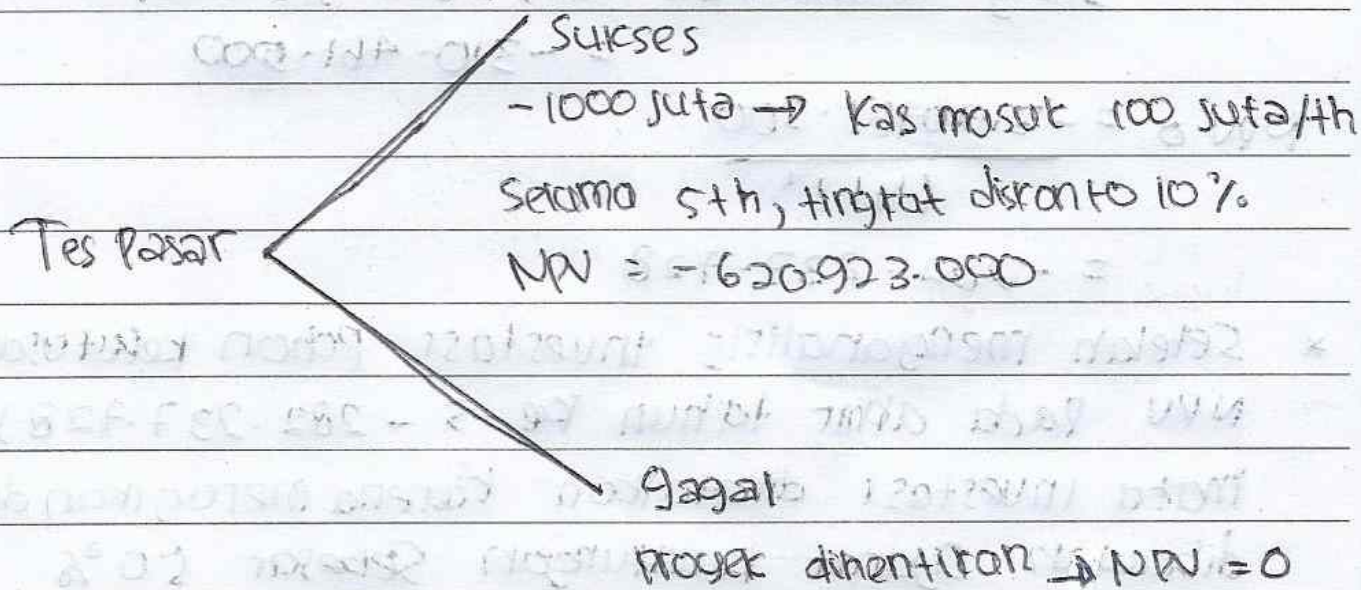 Sukses
-1000 juta → Kas masuk 100 juta/th
Selama 5th, tingkat diskonto 10%
Tes Pasar
NPV = -620.923.000
gagal
Proyek dihentikan → NPV = 0